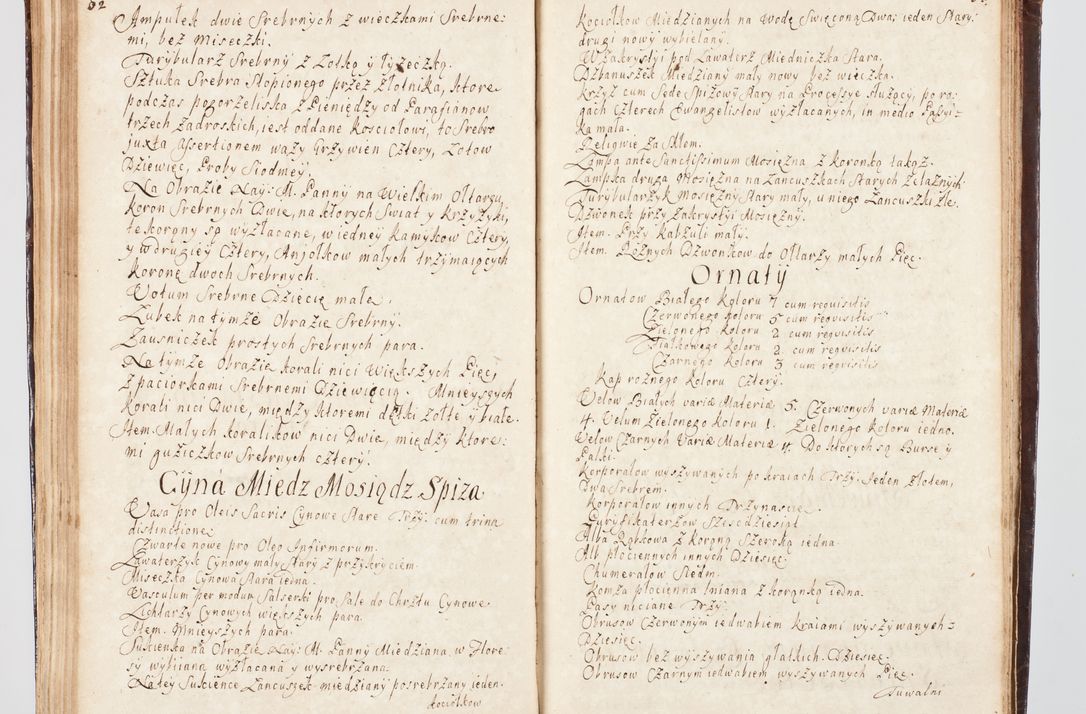 62
Ampułek dwie Srebrnych z wieczkami Srebrne:
mi, bez Miseczki.
Turybularz Srebrny z Łotką y łyżeczką.
Sztuka Srebra Stopionego przez Złotnika, ktore
podczas pogorzeliska z Pieniędzy od Parafianow
trzech Zadroskich, iest oddane Kosciołowi, to Srebro
juxta assertionem waży Grzywien Cztery, Łotow
Dziewięc, Proby Siodmey.
Na Obrazie Nay: M. Panny na Wielkim Ołtarzu,
Koron Srebrnych Dwie, na ktorych Swiat y Krzyżyki,
te korony są wyzłacane, w iedney Kamykow Cztery,
y w drugiey Cztery, Anjołkow małych trzymaiących
Koronę dwoch Srebrnych.
Wotum Srebrne Dziecię małe.
Ząbek na tymże Obrazie Srebrny.
Zausniczek prostych Srebrnych para.
Na tymże Obrazie korali nici Większych Pięc,
z paciorkami Srebrnemi Dziewięcią. Mnieyszych
Korali nici Dwie, między ktoremi dętki żołte y białe.
Item. Małych koralikow nici Dwie, między ktore:
mi guziczkow Srebrnych cztery.
Cyná Miedz Mosiądz Spiza
Vasa pro Oleis Sacris Cynowe Stare Trzy: cum trina
distinctione.
Czwarte nowe pro Oleo Infirmorum.
Lawaterzyk Cynowy mały Stary z przykryciem.
Miseczka Cynowa Stara iedna.
Vasculum per modum Salserki pro Sale do Chrztu Cynowe.
Lichtarzy Cynowych większych para.
Item. Mnieyszych para.
Sukienka na Obrazie Nay: M. Panny Miedziana, w Flore:
sy wybiiana wyzłacana y wysrebrzana.
Na tey Sukience Łancuszek miedziany posrebrzany ieden.
kociołkow
Kociołkow Miedzianych na Wodę Swięconą Dwa; ieden Stary
drugi nowy wybielany.
W Zakrystyi pod Lawaterz Miedniczka Stara.
Dzbanuszek Miedziany mały nowy bez wieczka.
Krzyż cum Sede Spizowy Stary na Processye służący, po ro:
gach Czterech Ewangelistow wyzłacanych, in medio Passyi:
ka mała.
Religiwie za Szkłem.
Lampa ante Sanctissimum Mosiężna z koronką takąż.
Lampka druga Mosiężna na Łancuszkach Starych żelaznych.
Turybularzyk mosiężny Stary mały, u niego Łancuszki złe.
Dzwonek przy Zakrystyi Mosiężny.
Item. Przy Kabzuli mały.
Item. Ręcznych Dzwonkow do Ołtarzy małych Pięc.
Ornaty
Ornatow Białego Koloru 7 cum requisitis
Czerwonego Koloru 5 cum requisitis
Zielonego Koloru 2 cum requisitis
Fiałkowego Koloru 2 cum requisitis
Czarnego Koloru 3 cum requisitis
Kap rożnego Koloru Cztery.
Velow Białych variæ Materiæ 5. Czerwonych variæ Materiæ
4. Velum Zielonego Koloru 1. Zielonego Koloru iedno.
Velow Czarnych Variæ Materiæ 4. Do ktorych są Bursy y
Palki.
Korporałow wyszywanych po kraiach Trzy. Jeden Złotem,
Dwa Srebrem.
Korporałow innych Trzynascie.
Puryfikaterzow Szescdziesiąt
Alba Rąbkowa z koroną Szeroką iedna.
Alb płociennych innych Dziesięc.
Chumerałow Siedm.
Komża płocienna lniana z koronką iedna.
Pasy niciane Trzy.
Obrusow Czerwonym iedwabiem kraiami wyszywanych
Dziesięc.
Obrusow bez wyszywania gładkich Dziesięc.
Obrusow Czarnym iedwabiem wyszywanych Pięc.
Tuwalni